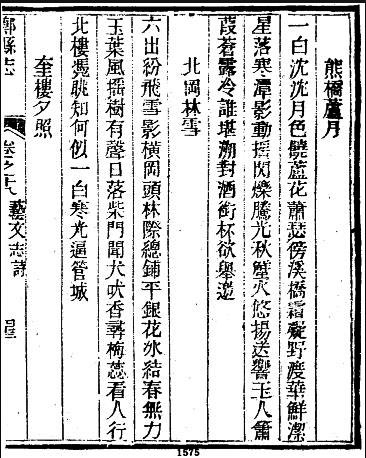 熊橋蘆月
一白沈沈月色饒蘆花蕭瑟傍溪橋霜凝野渡華鮮潔
星落寒潭影動搖閃爍騰光秋螢火悠揚送響玉人簫
葭蒼露冷誰堪溯對酒銜杯欲舉邀
北岡林雪
六出紛飛雪影橫岡頭林際總鋪平銀花冰結春無力
玉葉風搖樹有聲日落柴門聞犬吠香尋梅蕊看人行
北樓凴眺知何似一白寒光逼管城
奎樓夕照
縣志
卷之十八
藝文志詩
1575